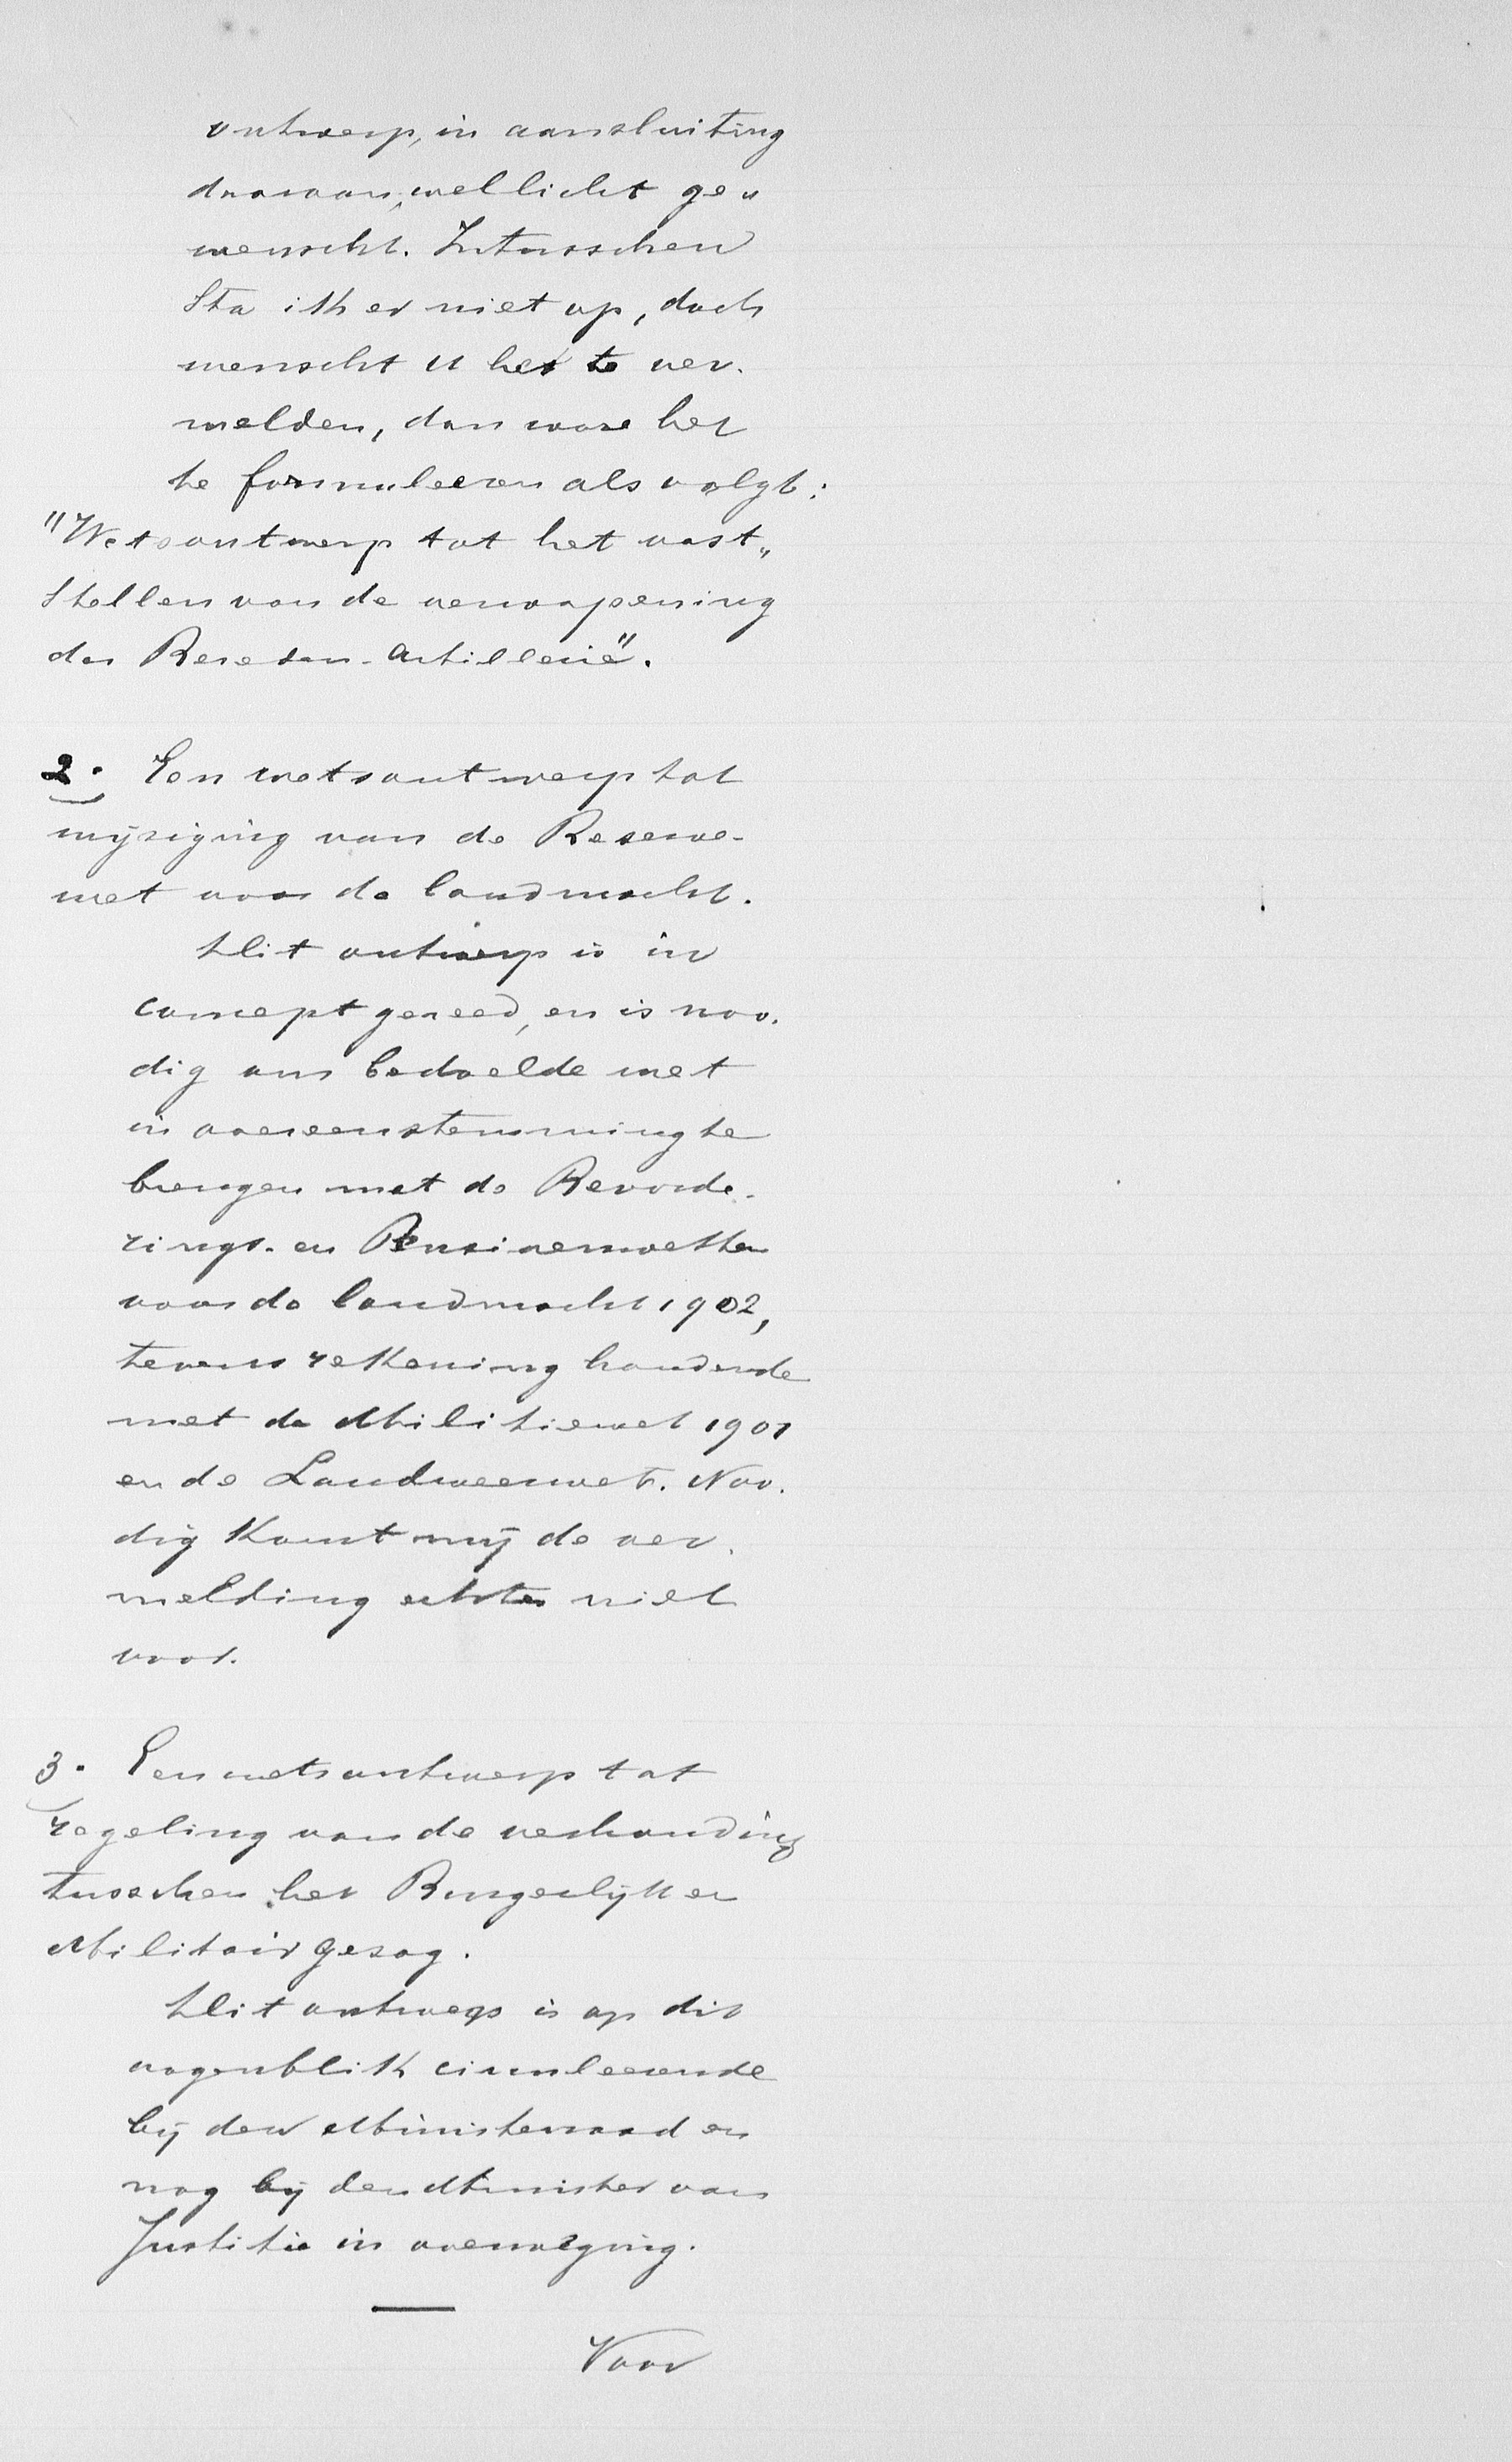 ontwerp, in aansluiting
daaraan, wellicht ge„
wenscht. Intusschen
sta ik er niet op, doch
wenscht U het te ver-
melden, dan ware het
te formuleeren als volgt:
"Wetsontwerp tot het vast„
stellen van de verwapening
der Bereden-Artillerie".
2. Een wetsontwerp tot
wijziging van de Reserve-
wet voor de landmacht.
Dit ontwerp is in
concept gereed, en is noo-
dig om bedoelde wet
in overeenstemming te
brengen met de Bevorde-
rings- en Pensioenwetten
voor de landmacht 1902,
tevens rekening houdende
met de Militiewet 1901
en de Landweerwet. Noo-
dig komt mij de ver-
melding echter niet
voor.
3. Een wetsontwerp tot
regeling van de verhouding
tusschen het Burgerlijk en
Militair gezag.
Dit ontwerp is op dit
oogenblik circuleerende
bij den Ministerraad en
nog bij den Minister van
Justitie in overweging.
Voor